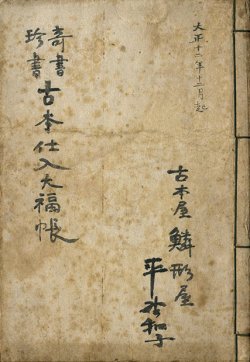 大正十二年十二月起
古本屋 鱗形屋
平
奇書
珍書
古本仕入大福帳